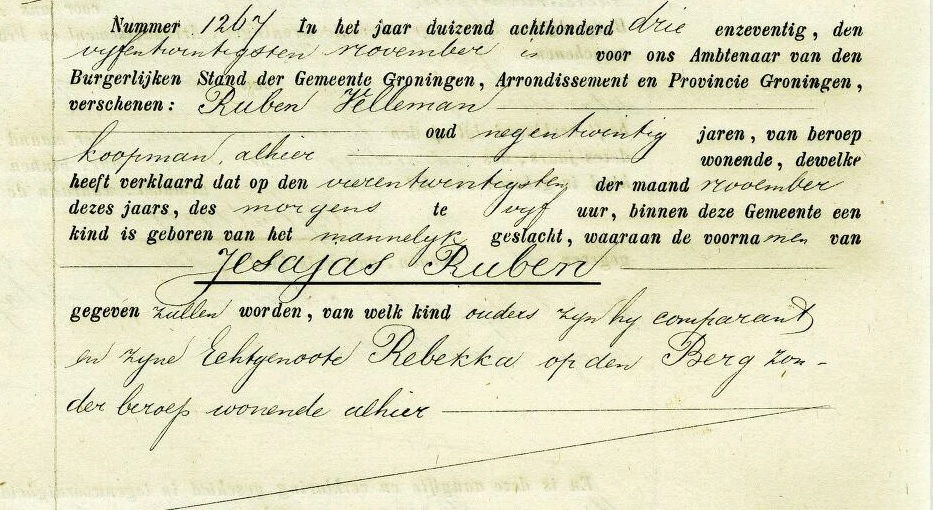 Nummer 1267 In het jaar duizend achthonderd drie enzeventig, den
vijfentwintigsten november voor ons Ambtenaar van den
Burgerlijken Stand der Gemeente Groningen, Arrondissement en Provincie Groningen,
verschenen: Ruben Velleman
oud negentwintig jaren, van beroep
koopman, alhier wonende, dewelke
heeft verklaard dat op den vierentwintigsten der maand november
dezes jaars, des morgens te vijf uur, binnen deze Gemeente een
kind is geboren van het mannelyk geslacht, waaraan de voornamen van
Jesajas Ruben
gegeven zullen worden, van welk kind ouders zyn hy comparant
en zyne Echtgenoote Rebekka op den Berg zon-
der beroep wonende alhier